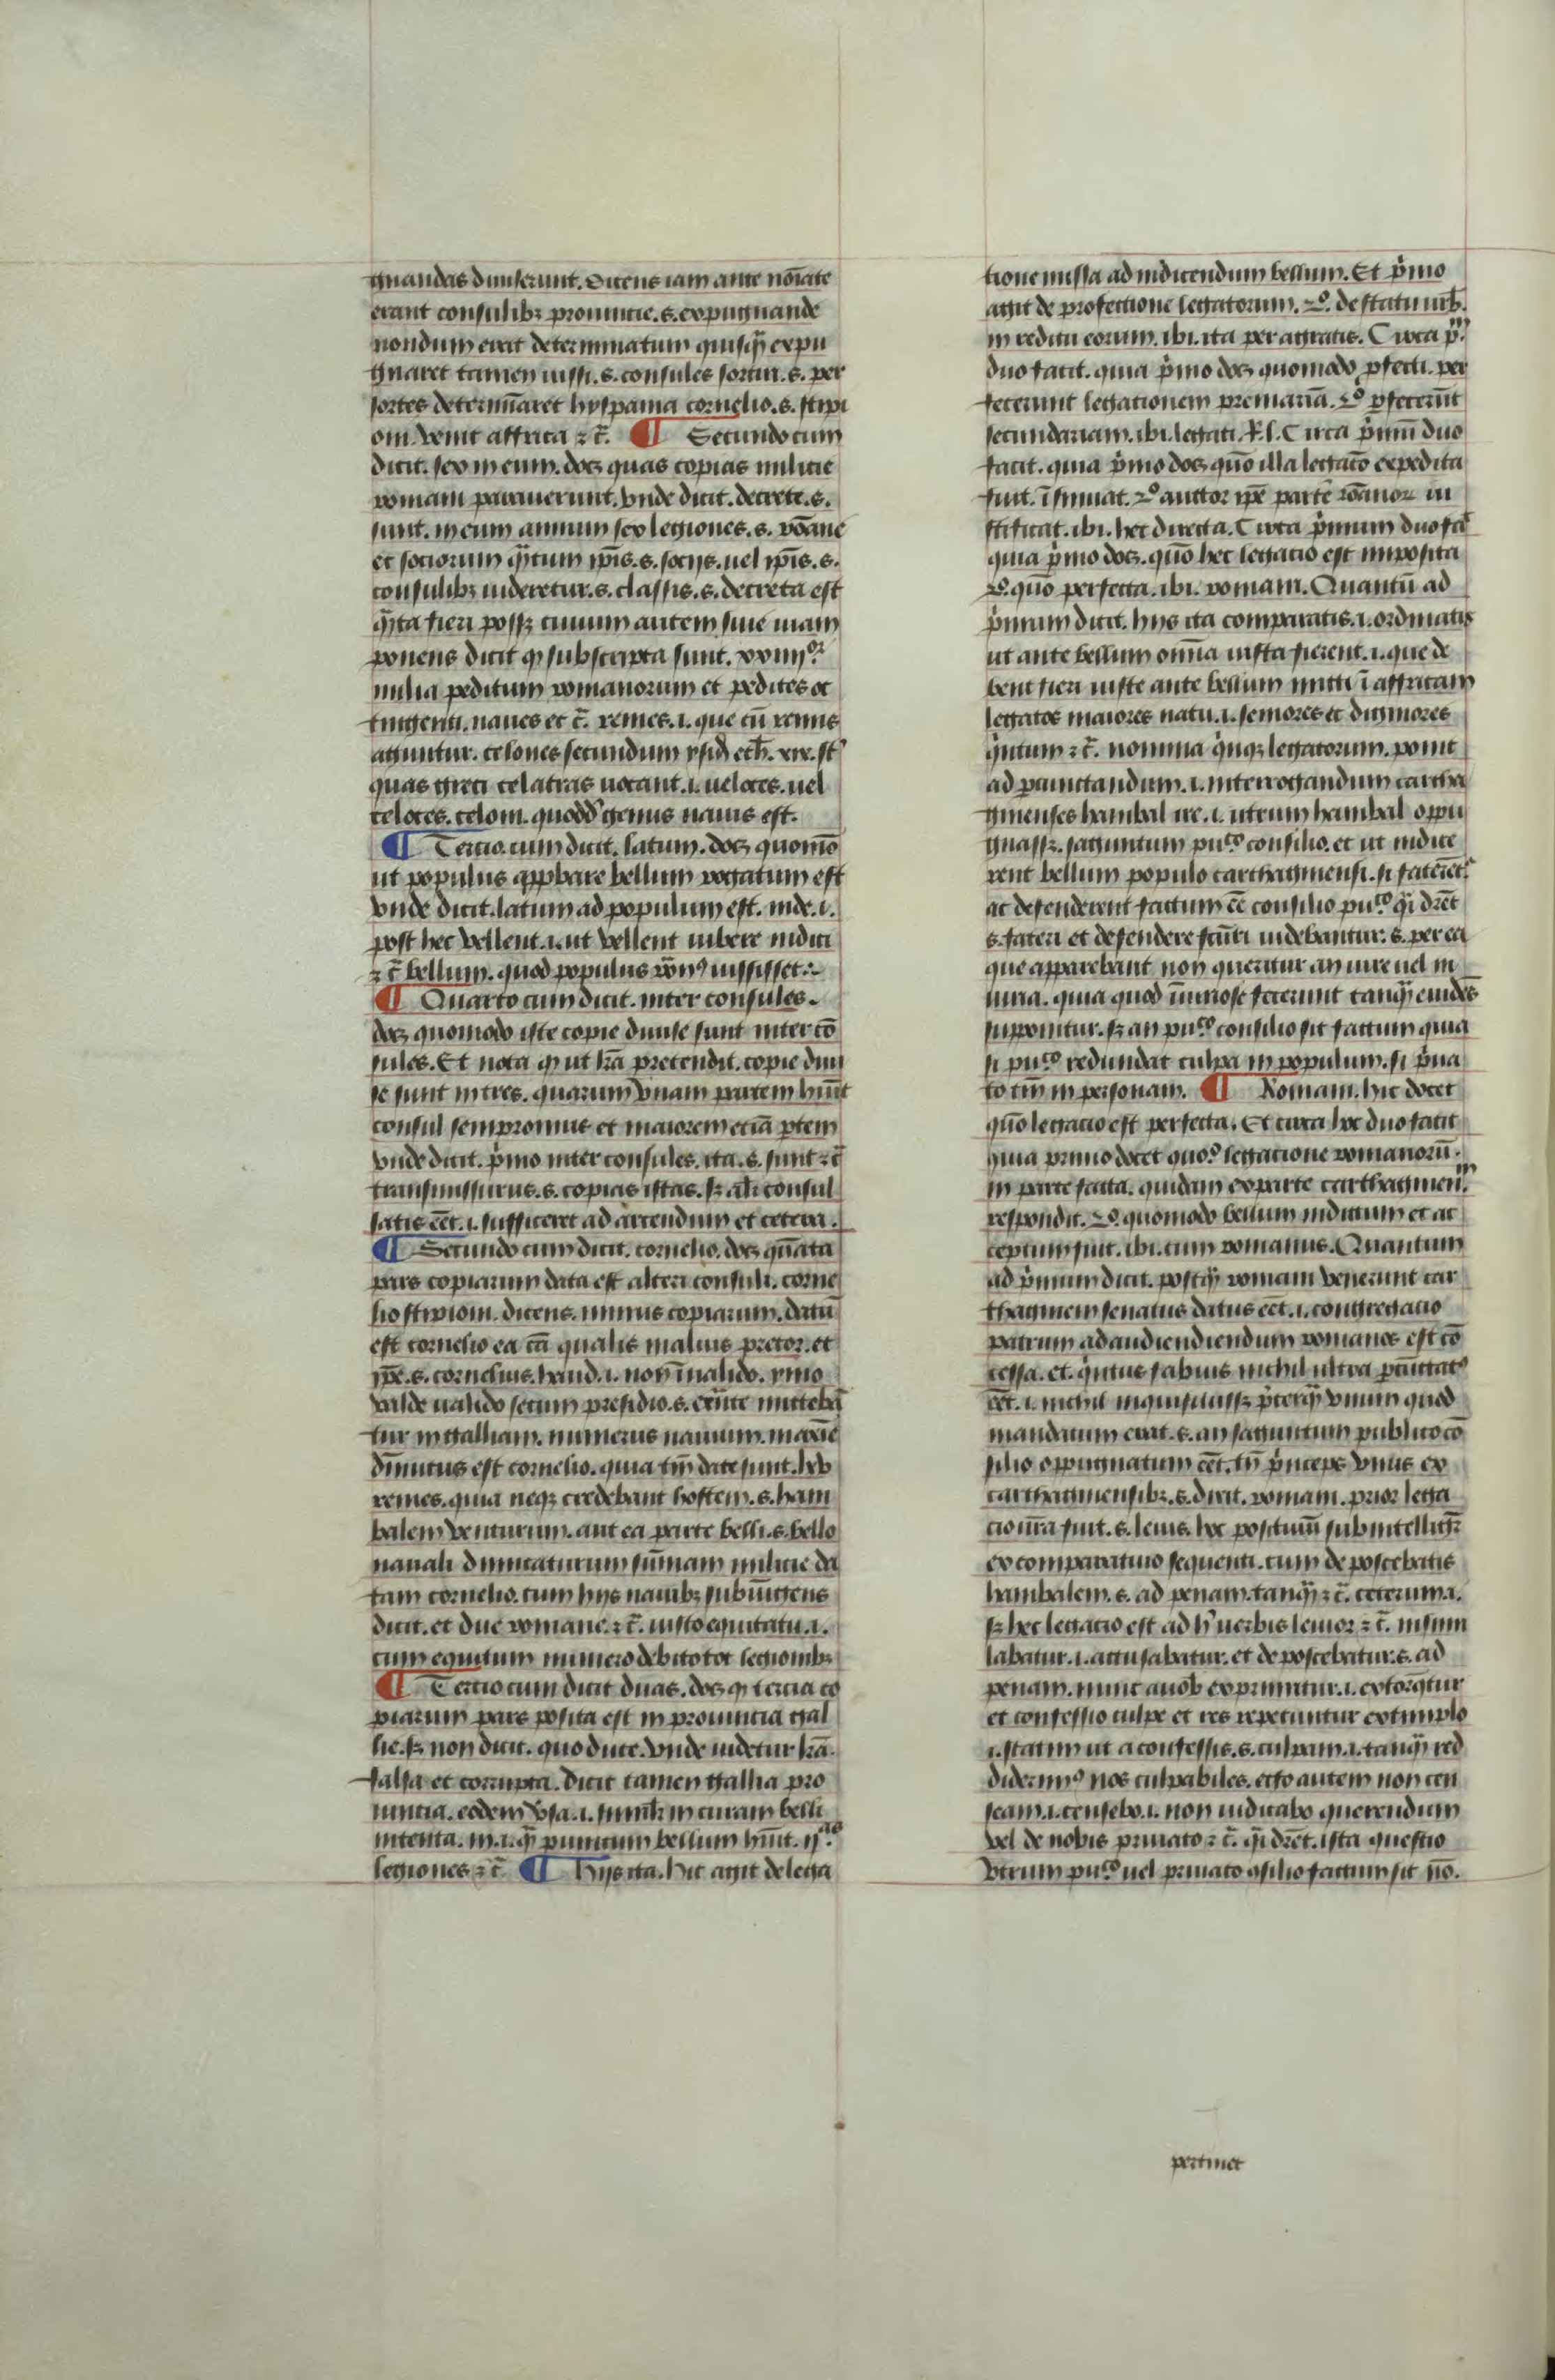 gnandas diuiserunt. Dicens iam ante nōiate
erant consulibꝫ prouincie .s. expugnande
nondum erat determinatum quisqꝫ expu
gnaret tamen iussi .s. consules sortiri .s. per
sortes determīaret hyspania cornelio .s. scipi
oni. venit affrica ⁊ c̄. ¶ Secundo cum
dicit. sex in eum. docꝫ quas copias milicie
romani parauerunt. vnde dicit. decrete .s.
sunt. in eum annum sex legiones .s. rōane
et sociorum q̄ntum ip̄is .s. socijs. uel ip̄is .s.
consulibꝫ uideretur .s. classis .s. decreta est
q̄nta fieri possꝫ ciuium autem siue inam
ponens dicit ꝙ subscripta sunt. xxiiijor
milia peditum romanorum et pedites oc
tingenti. naues et c̄. remes .i. que cū remis
aguntur. celones secundum ysid̄ eth̄. xix. sᵗ
quas greci celatras uocant .i. ueloces. uel
celoces. celom. quodd̄ genus nauis est.
¶ Tercio cum dicit. latum. docꝫ quomō
ut populus approbare bellum rogatum est
vnde dicit. latum ad populum est. inde .i.
post hec vellent .i. ut vellent iubere indici
⁊ c̄ bellum. quod populus rōnꝰ iussisset.
¶ Quarto cum dicit. inter consules.
docꝫ quomodo iste copie diuise sunt inter cō
sules. Et nota ꝙ ut lr̄a pretendit. copie diui
se sunt in tres. quarum vnam partem hūit
consul sempronius et maiorem eciā ꝑtem
vnde dicit. p̄mo inter consules. ita .s. sunt ⁊ c̄
transmissurus .s. copias istas. sꝫ alt̄i consul
satis eēt .i. sufficeret ad arcendum et cetera.
¶ Secundo cum dicit. cornelio. docꝫ quāta
pars copiarum data est alteri consuli. corne
lio scipioni. dicens. minus copiarum. datū
est cornelio ea cā qualis maluis pretor. et
ip̄e .s. cornelius. haud .i. non īualido. ymo
valde ualido secum presidio .s. exn̄te mitteba
tur in galliam. numerus nauium. maxīe
dīnutus est cornelio. quia tm̄ date sunt. lxv
remes. quia neqꝫ credebant hostem .s. ham
balem venturum. aut ea parte belli .s. bello
nauali dimicaturum sūmam milicie da
tam cornelio. cum hijs nauibꝫ subiūgens
dicit. et due romane. ⁊ c̄. iusto equitatu .i.
cum equitum numero debito tot legionibꝫ
¶ Tercio cum dicit duas. docꝫ ꝙ tercia co
piarum pars posita est in prouincia gal
lie. sꝫ non dicit. quo duce. vnde uidetur lr̄a
falsa et corrupta. Dicit tamen gallia pro
uincia. eodem v̄sa .i. simil̄r in curam belli
intenta. in .i. q̄ punicum bellum hūit. ijas
legiones ⁊ c̄ ¶ Hijs ita. hic agit de lega
tione missa ad indicendum bellum. Et p̄mo
agit de profectione legatorum. 2o. de statu urb̄.
in reditu eorum. ibi. ita peragratis. Circa p̄m
duo facit. quia p̄mo docꝫ quomodo ꝓfecti. per
fecerunt legationem premariā. 2o ꝑfecerūt
secundariam. ibi. legati. R̄. l. Circa p̄mū duo
facit. quia p̄mo docꝫ quō illa legacō expedita
fuit. īsinuat. 2o auctor ip̄e partē rōanoꝝ iu
stificat. ibi. hec directa. Circa p̄mum duo fac̄
quia p̄mo docꝫ. quō hec legacio est imposita
2o. quō perfecta. ibi. romam. Quantū ad
p̄mum dicit. hijs ita comparatis .i. ordinatis
ut ante bellum om̄ia iusta fierent .i. que de
bent fieri iuste ante bellum mitti ī affricam
legatos maiores natu .i. seniores et digniores
q̄ntum ⁊ c̄. nomina q̄nqꝫ legatorum. ponit
ad ꝑcunctandum .i. interrogandum cartha
ginenses hanibal ne .i. utrum hanibal oppu
gnassꝫ. saguntum puco consilio. et ut indice
rent bellum populo carthaginensi. si faterēt
ac defenderent factum eē consilio puco q̄i dr̄et
.s. fateri et defendere fcūri uidebantur .s. per ea
que apparebant non queritur an iure uel in
iuria. quia quod iīuriose fecerunt tanqꝫ euidēs
supponitur. sꝫ an puco consilio sit factum quia
si puco redundat culpa in populum. si p̄ua
to tm̄ in personam. ¶ Romam. hic docet
quō legacio est perfecta. Et circa hec duo facit
quia primo docet quoo legacione romanorū.
in parte facta. quidam ex parte carthaginenm
respondit. 2o. quomodo bellum indictum et ac
ceptum fuit. ibi. tum romanus. Quantum
ad p̄mum dicit. postqꝫ romani venerunt car
thaginem senatus datus eēt .i. congregacio
patrum ad audiendiendum romanos est cō
cessa. et. q̄ntus fabius nichil ultra ꝑcūctatꝰ
eēt .i. nichil inquisiuissꝫ p̄terqꝫ vnum quod
mandatum erat .s. an saguntum publico cō
silio oppugnatum eēt. tn̄ p̄nceps vnus ex
carthaginensibꝫ .s. dixit. romani. prior lega
cio ura fuit .s. leuis. hoc positiuū subintelligit̄
ex comparatiuo sequenti. cum deposcebatis
hanibalem .s. ad penam. tanqꝫ ⁊ c̄. ceterum .i.
sꝫ hec legacio est adhuc uerbis lenior ⁊ c̄. insimu
labatur .i. accusabatur. et deposcebatur .s. ad
penam. nunc auob̄ exprimitur .i. extorq̄tur
et confessio culpe et res repetuntur extimplo
.i. statim ut a confessis .s. culpam .i. tanqꝫ red
diderimꝰ nos culpabiles. ecfo autem non cen
seam .i. censebo .i. non iudicabo querendum
vel de nobis priuato ⁊ c̄. q̄i dr̄et. ista questio
vtrum puco uel priuato ꝯsilio factum sit nō.
pertinet